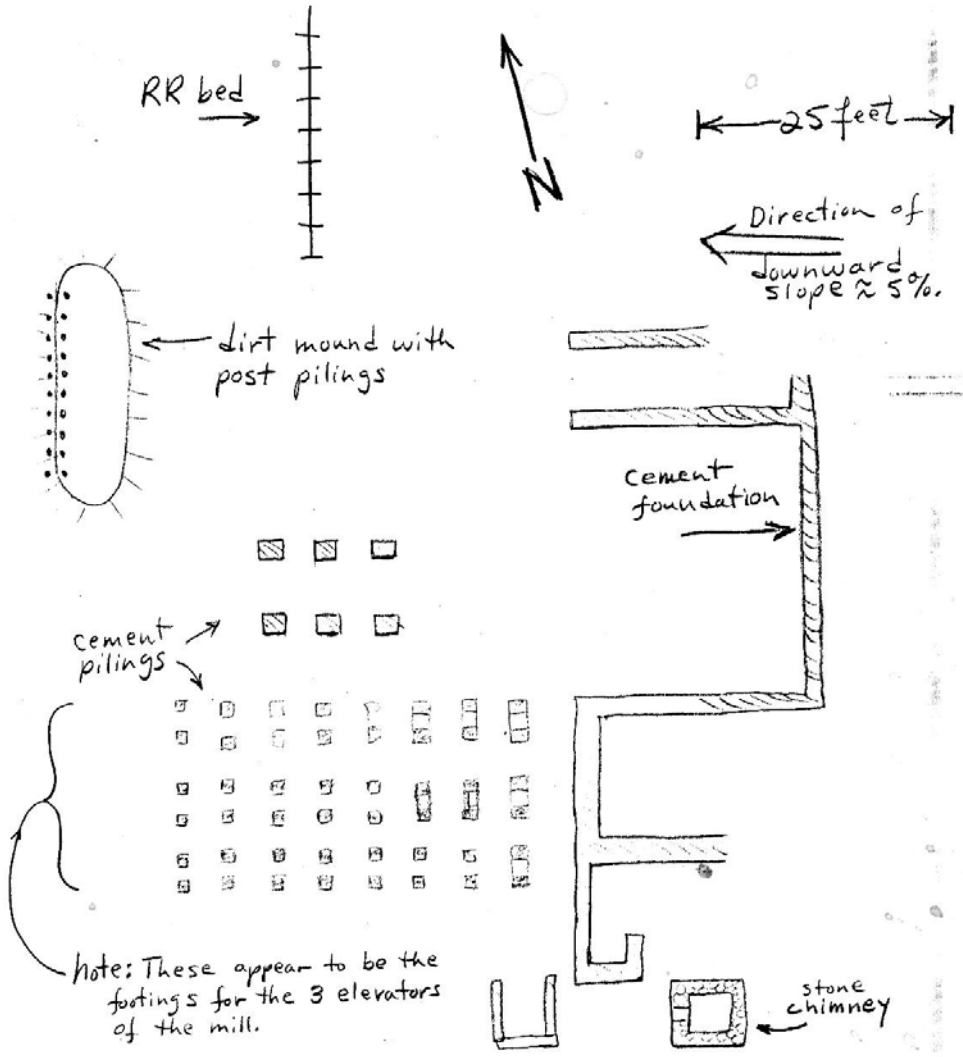 RR bed
N
25 feet
Direction of
downward
slope ≈ 5%.
dirt mound with
post pilings
cement
foundation
cement
pilings
note: These appear to be the
footings for the 3 elevators
of the mill.
stone
chimney